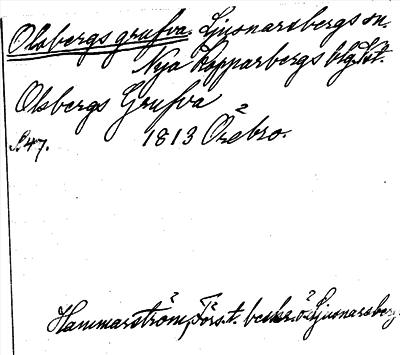 Olsbergs grufva. Ljusnarsbergs sn.
Nya Kopparbergs blg.
Olsbergs Grufva
s47. 1813 Örebro.
Hammarström, Förs.t. beskr. ö. Ljusnarsberg.